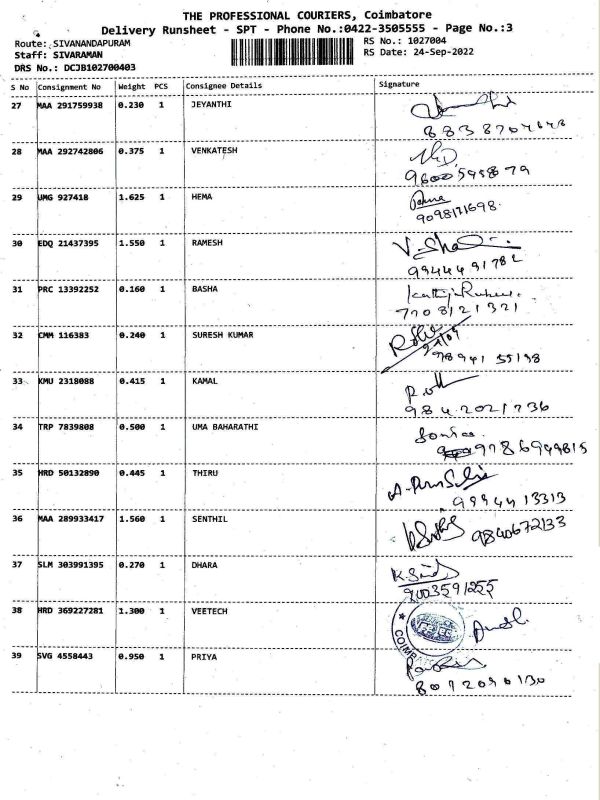 THE PROFESSIONAL COURIERS, Coimbatore
Delivery Runsheet - SPT - Phone No.:0422-3505555 - Page No.:3
Route: SIVANANDAPURAM
RS No.: 1027004
Staff: SIVARAMAN
RS Date: 24-Sep-2022
DRS No.: DCJB102700403
S No Consignment No Weight PCS Consignee Details Signature
27 MAA 291759938 0.230 1 JEYANTHI
28 MAA 292742806 0.375 1 VENKATESH
29 UMG 927418 1.625 1 HEMA
9098171698
30 EDQ 21437395 1.550 1 RAMESH
9944491782
31 PRC 13392252 0.160 1 BASHA
7708121321
32 CMM 116383 0.240 1 SURESH KUMAR
24/09
78941 55198
33 KMU 2318088 0.415 1 KAMAL
9842021736
34 TRP 7839808 0.500 1 UMA BAHARATHI
9786944815
35 HRD 50132890 0.445 1 THIRU
9994413313
36 MAA 289933417 1.560 1 SENTHIL
9840672133
37 SLM 303991395 0.270 1 DHARA
9003591255
38 HRD 369227281 1.300 1 VEETECH
39 SVG 4558443 0.950 1 PRIYA
8072090130